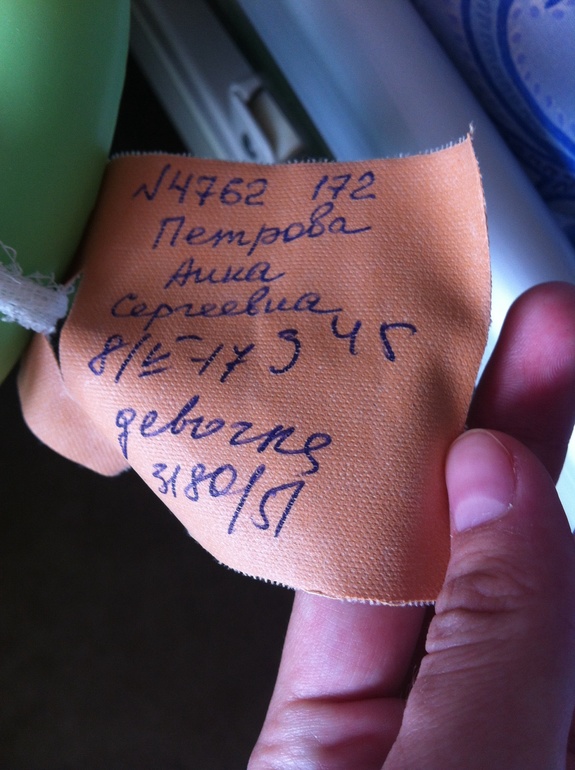 №4762 172
Петрова
Анна
Сергеевна
8/VI-17 9 45
девочка
3180/51